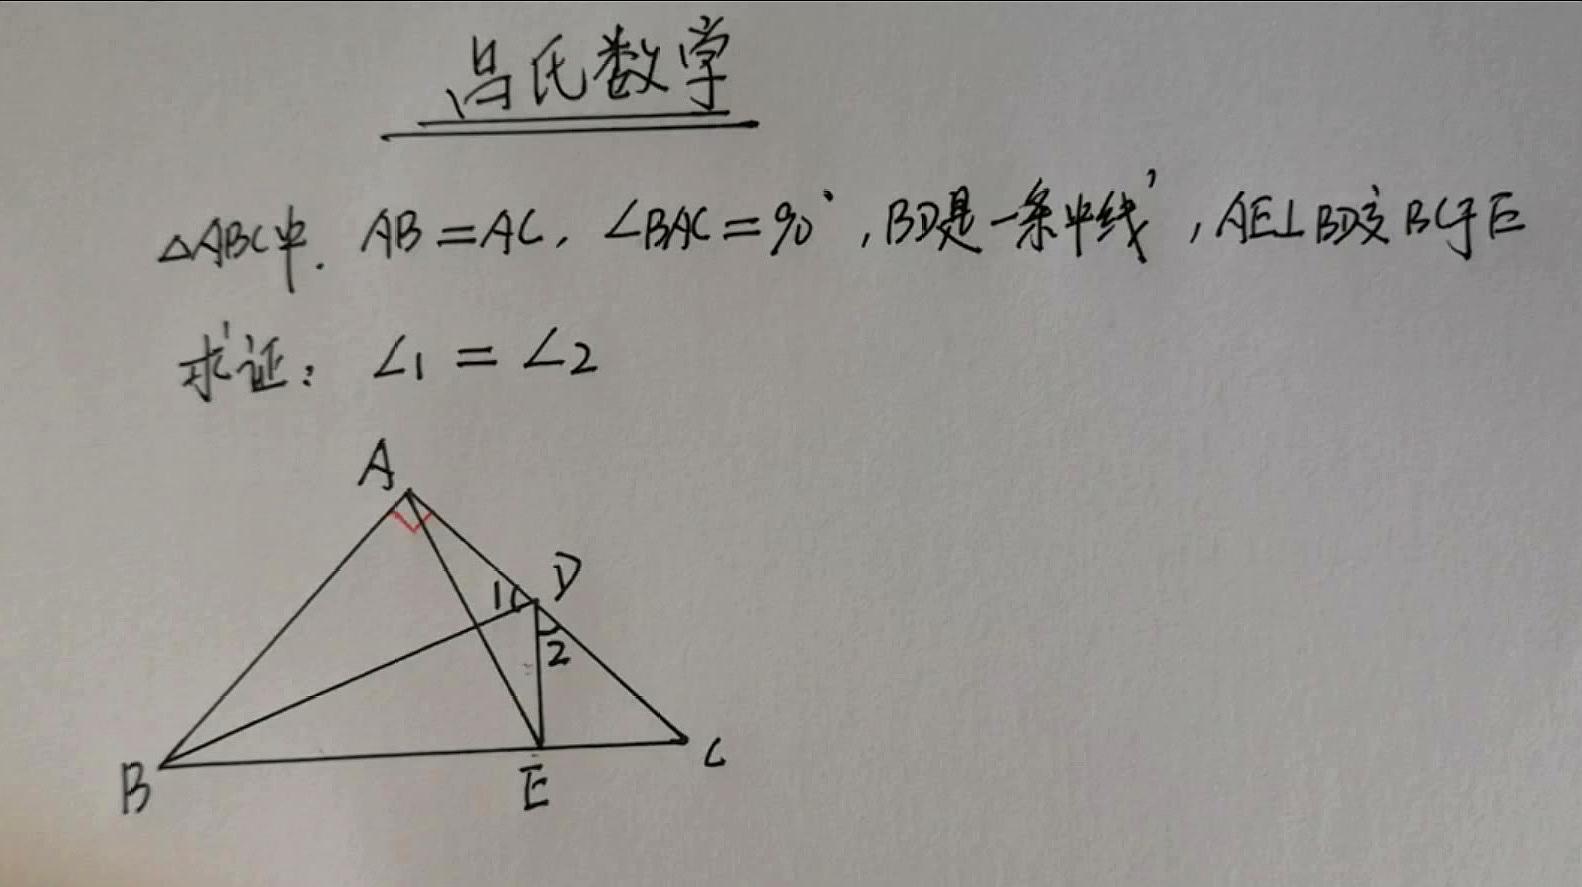 吕氏数学
△ABC中. AB=AC, ∠BAC=90°, BD是一条中线, AE⊥BD交BC于E
求证: ∠1=∠2
A
D
1
2
B
E
C